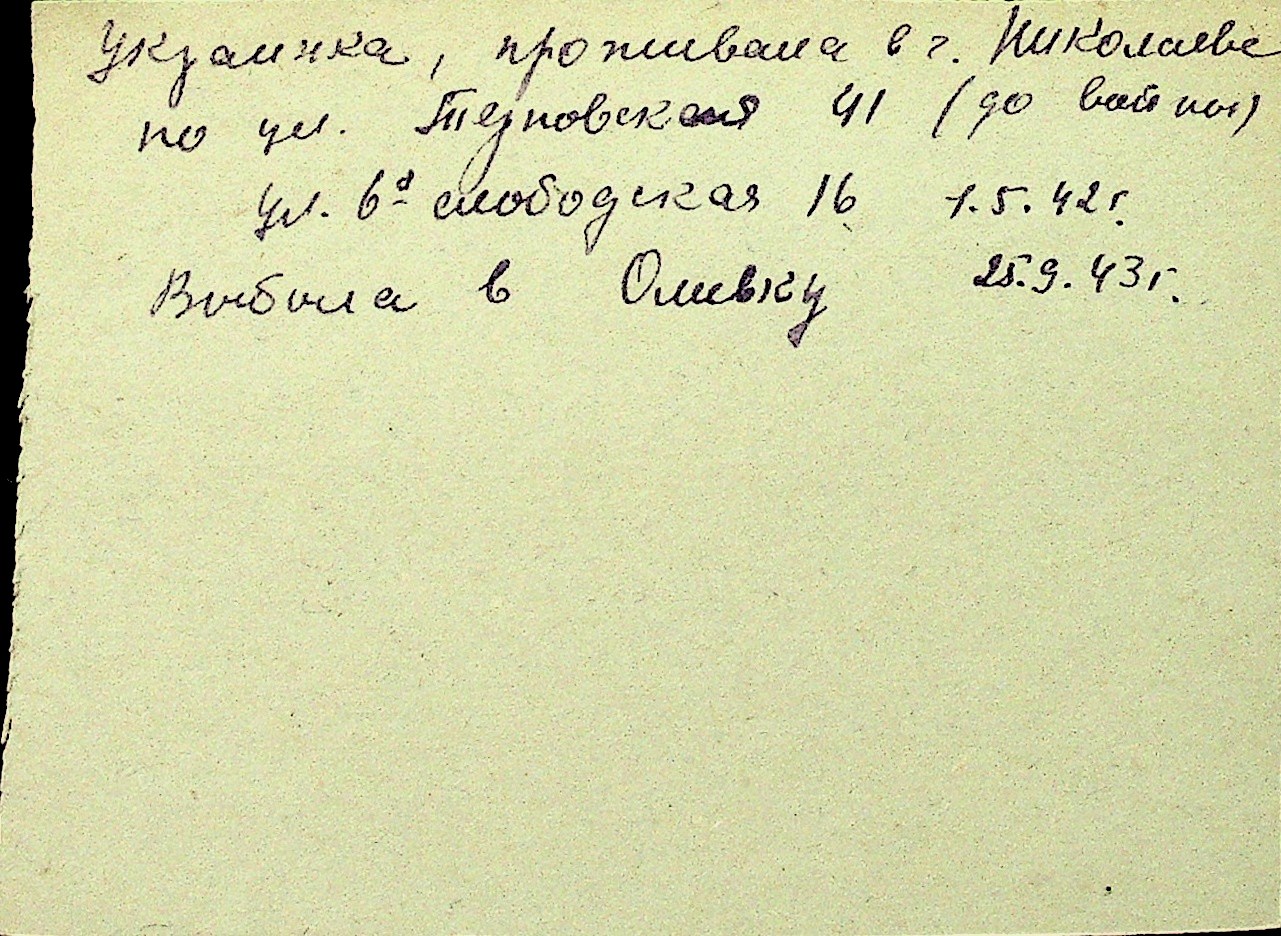 Украинка, проживала в г. Николаеве
по ул. Терновская 41 (до войны)
ул. 6я слободская 16 1.5.42г.
Выбыла в Оливку 25.9.43г.